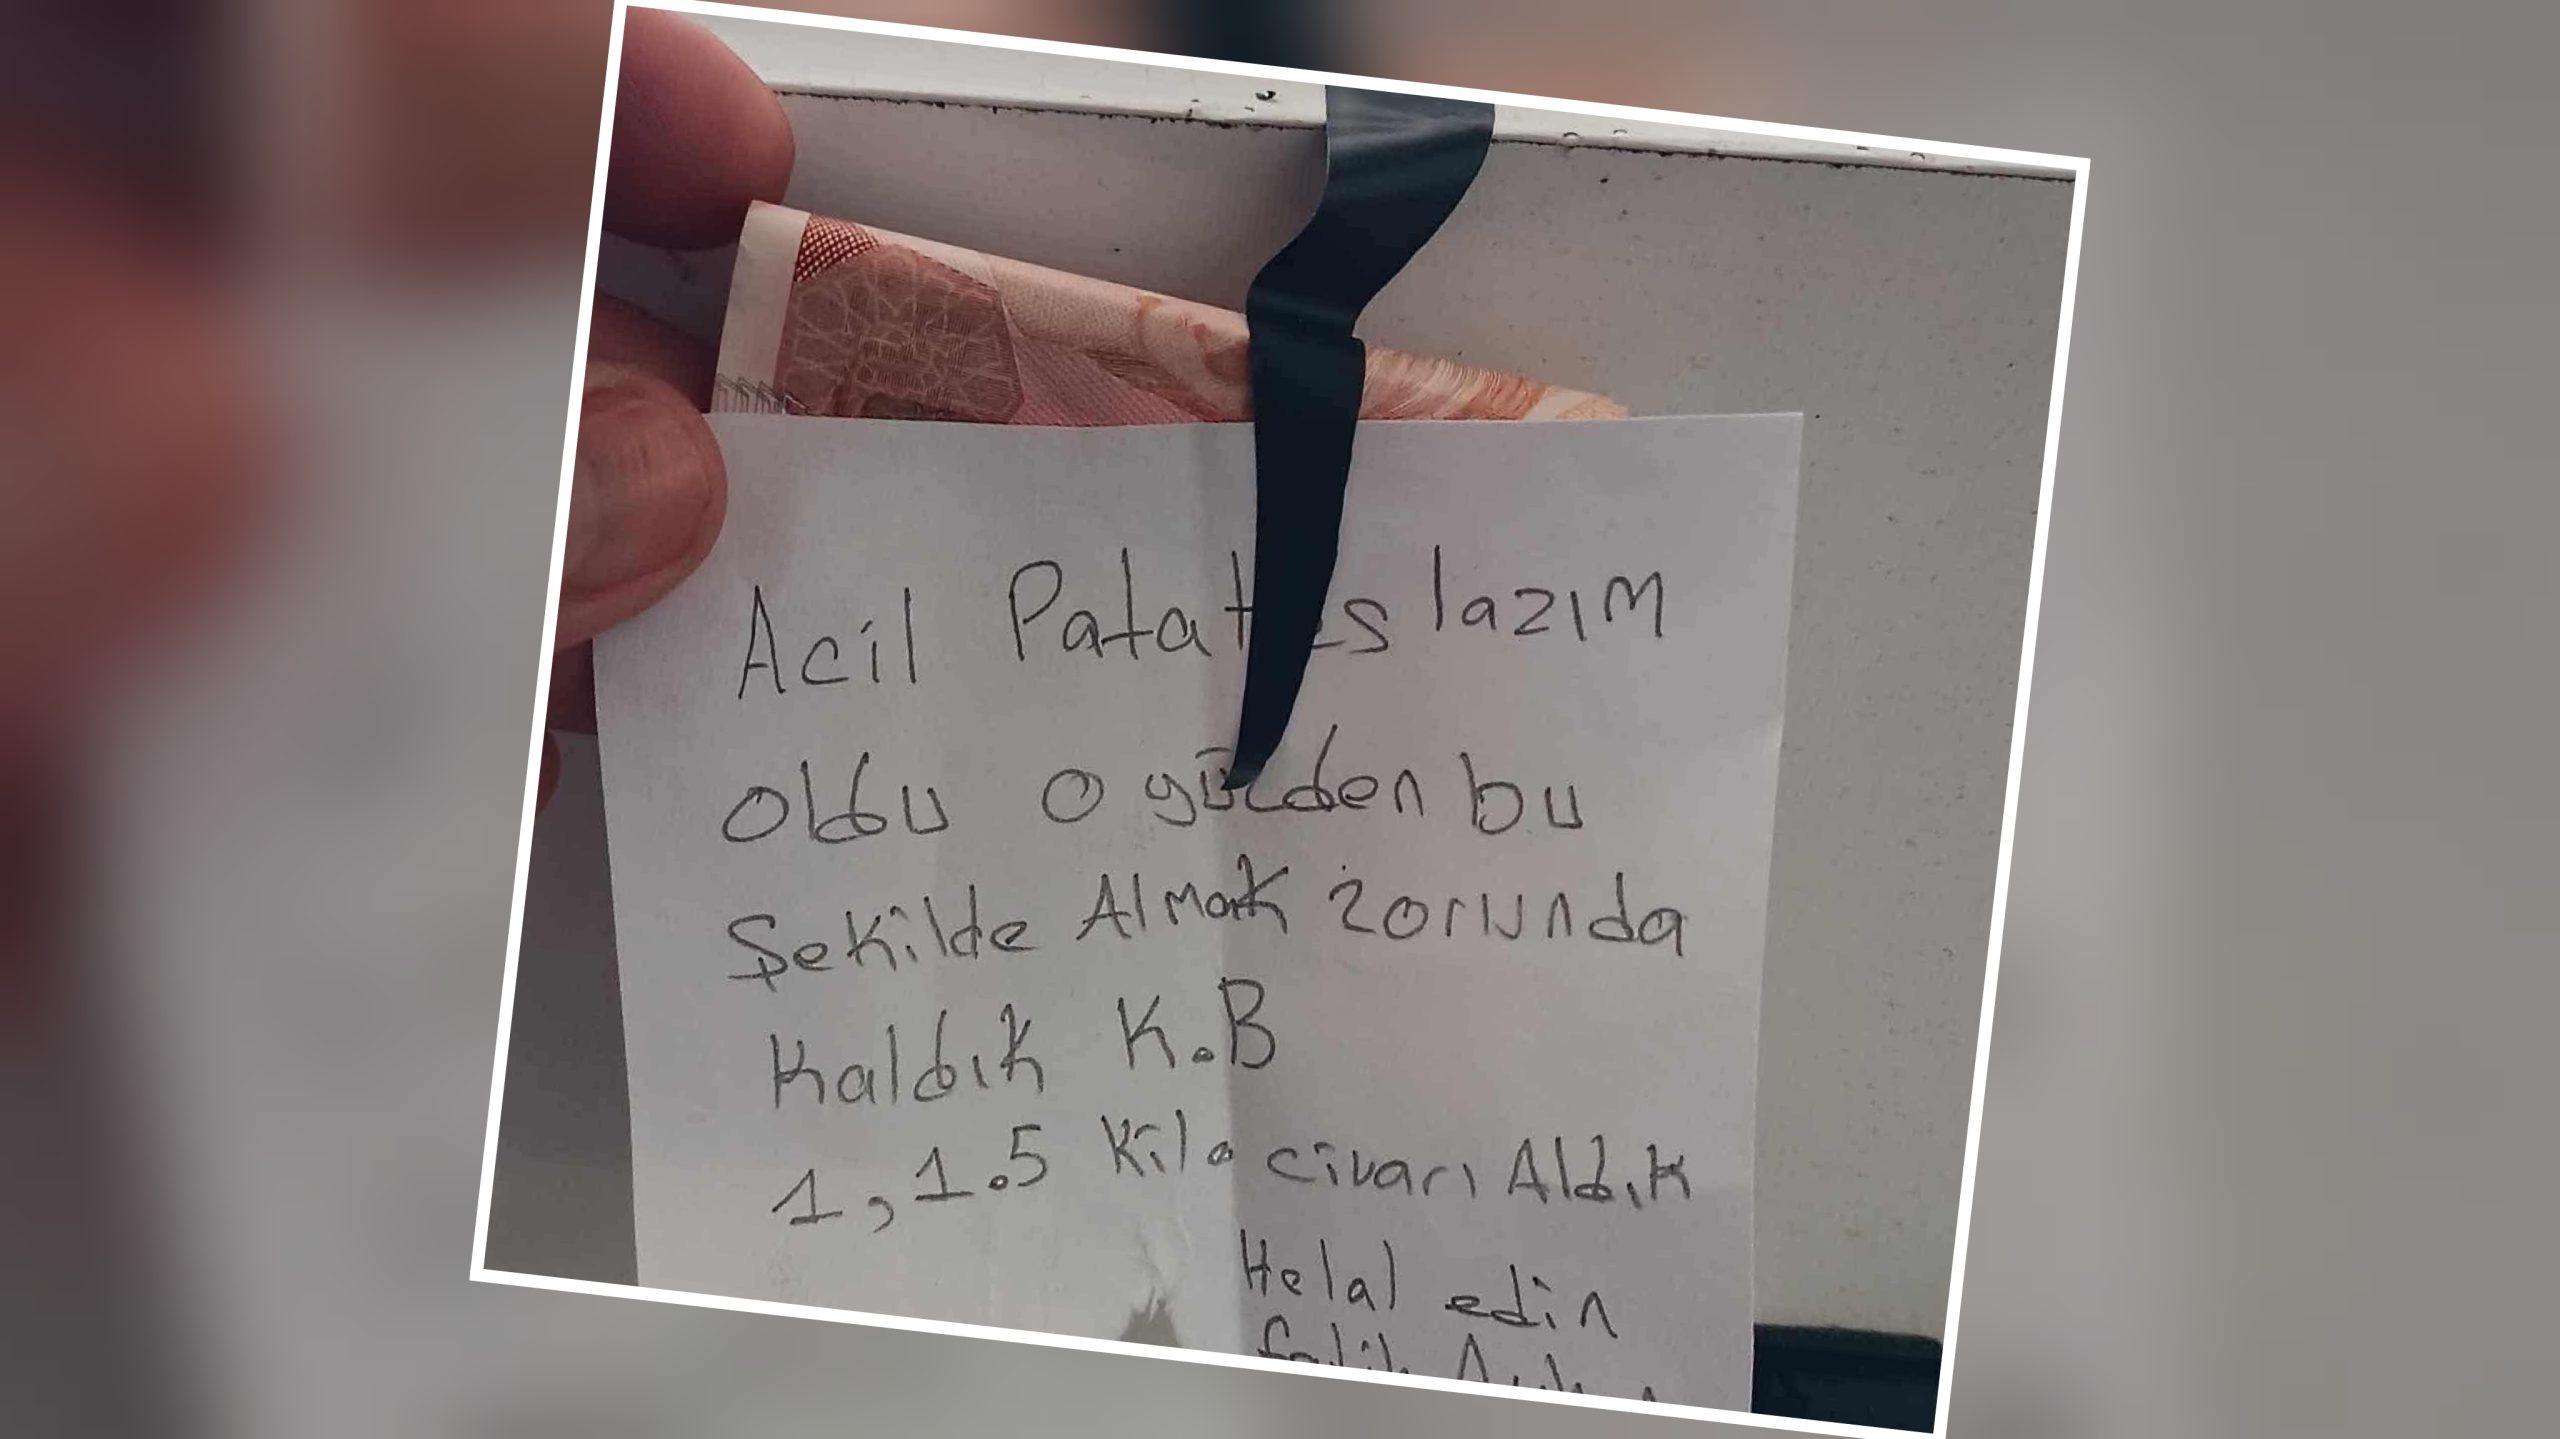 Acil Patates lazım
oldu o yüzden bu
Şekilde Almak zorunda
Kaldık K.B
1,1.5 Kilo civarı Aldık
Helal edin